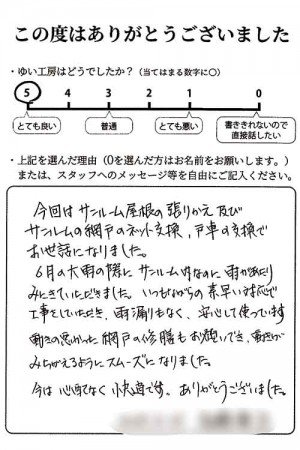 この度はありがとうございました
・ゆい工房はどうでしたか？（当てはまる数字に○）
5 4 3 2 1 0
とても良い 普通 とても悪い 書ききれないので直接話したい
・上記を選んだ理由（0を選んだ方はお名前をお願いします。）
または、スタッフへのメッセージ等を自由にご記入ください。
今回はサンルーム屋根の張りかえ及び
サンルームの網戸のネット交換、戸車の交換で
お世話になりました。
6月の大雨の際にサンルーム内なのに雨があたり
みにきていただきました。いつもながらの素早い対応で
工事をしていただき、雨漏りもなく、安心して使っています
動きの悪かった網戸の修膳もお願いでき、動きが
みちがえるようにスムーズになりました。
今は心配なく快適です。ありがとうございました。